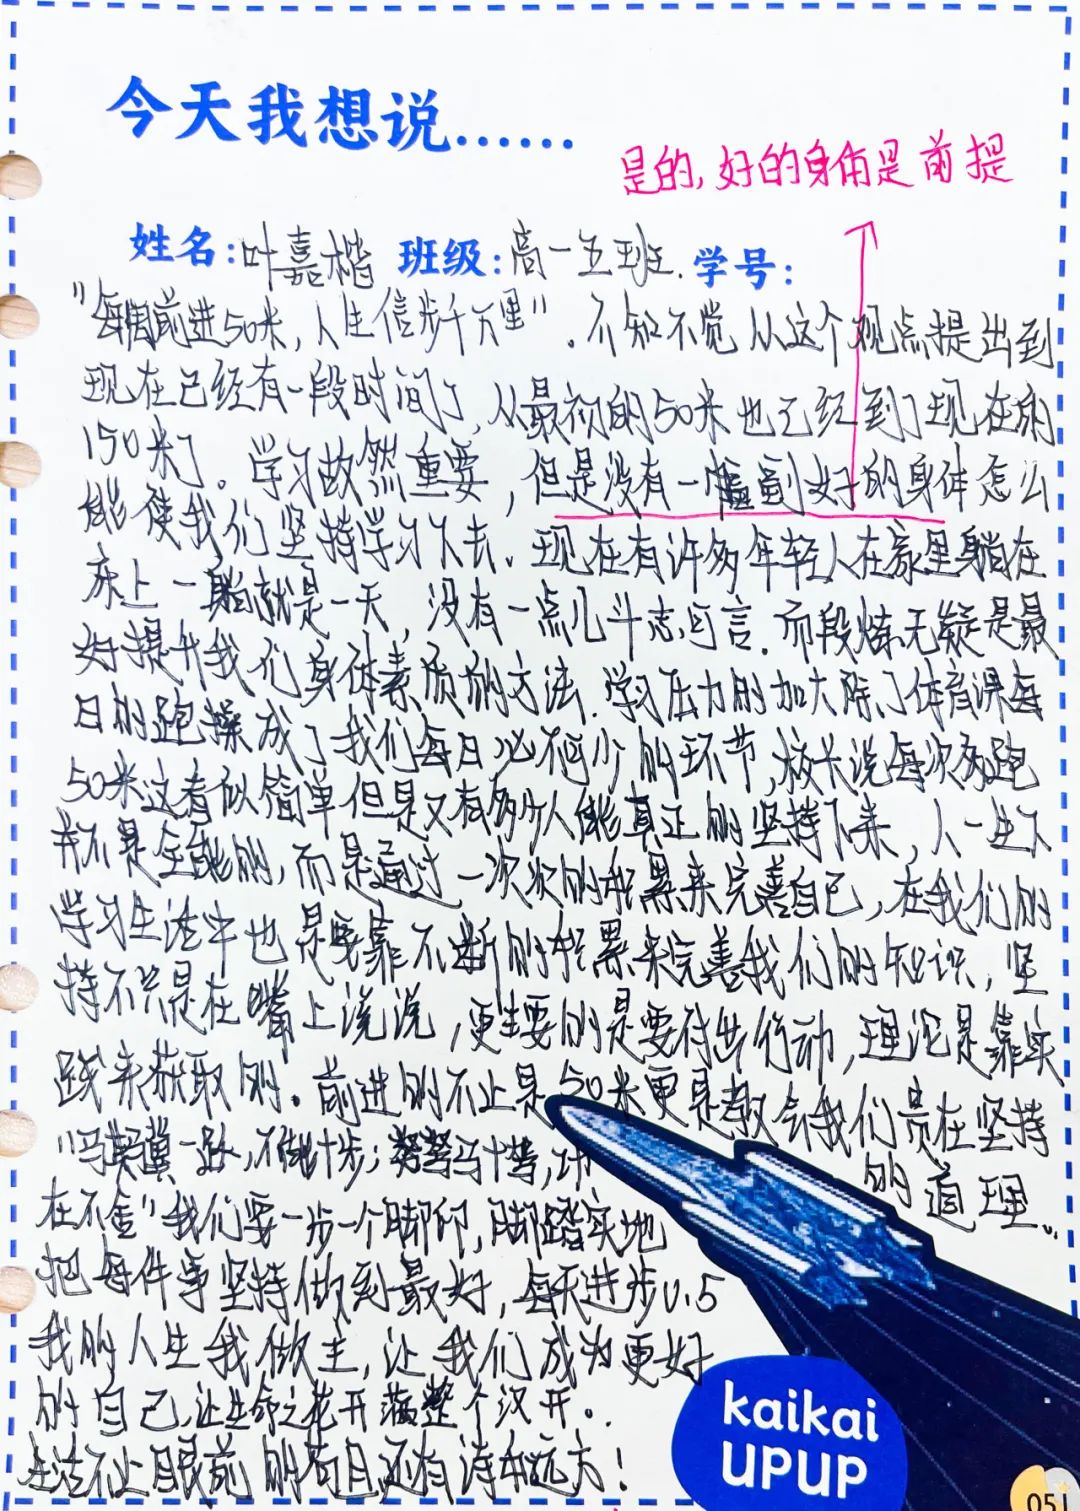 今天我想说……
是的,好的身体是前提
姓名:叶嘉楷 班级:高一五班. 学号:
"每周前进50米,人生信步千万里"。不知不觉从这个观点提出到
现在已经有一段时间了,从最初的50米也已经到了现在的
150米了。学习故然重要,但是没有一副好的身体怎么
能使我们坚持学习下去。现在有许多年轻人在家里躺在
床上一躺就是一天,没有一点儿斗志可言.而段炼无疑是最
好提升我们身体素质的方法.学习压力的加大除了体育课每
日的跑操成了我们每日必不可少的环节,校长说每次多跑
50米这看似简单但是又有多少人能真正的坚持下来,人一生下
并不是全能的,而是通过一次次的积累来完善自己,在我们的
学习生活中也是要靠不断的积累来完善我们的知识,坚
持不只是在嘴上说说,更主要的是要付出行动,理论是靠实
践来获取的。前进的不止是50米更是教会我们贵在坚持
的道理。
"马骐骥一跃,不能十步;驽马十驾,功
在不舍"我们要一步一个脚印,脚踏实地
把每件事坚持做到最好,每天进步0.5
我的人生我做主,让我们成为更好
的自己,让生命之花开满整个汉开。
生活不止眼前的苟且还有诗和远方!
kaikai
UPUP
051